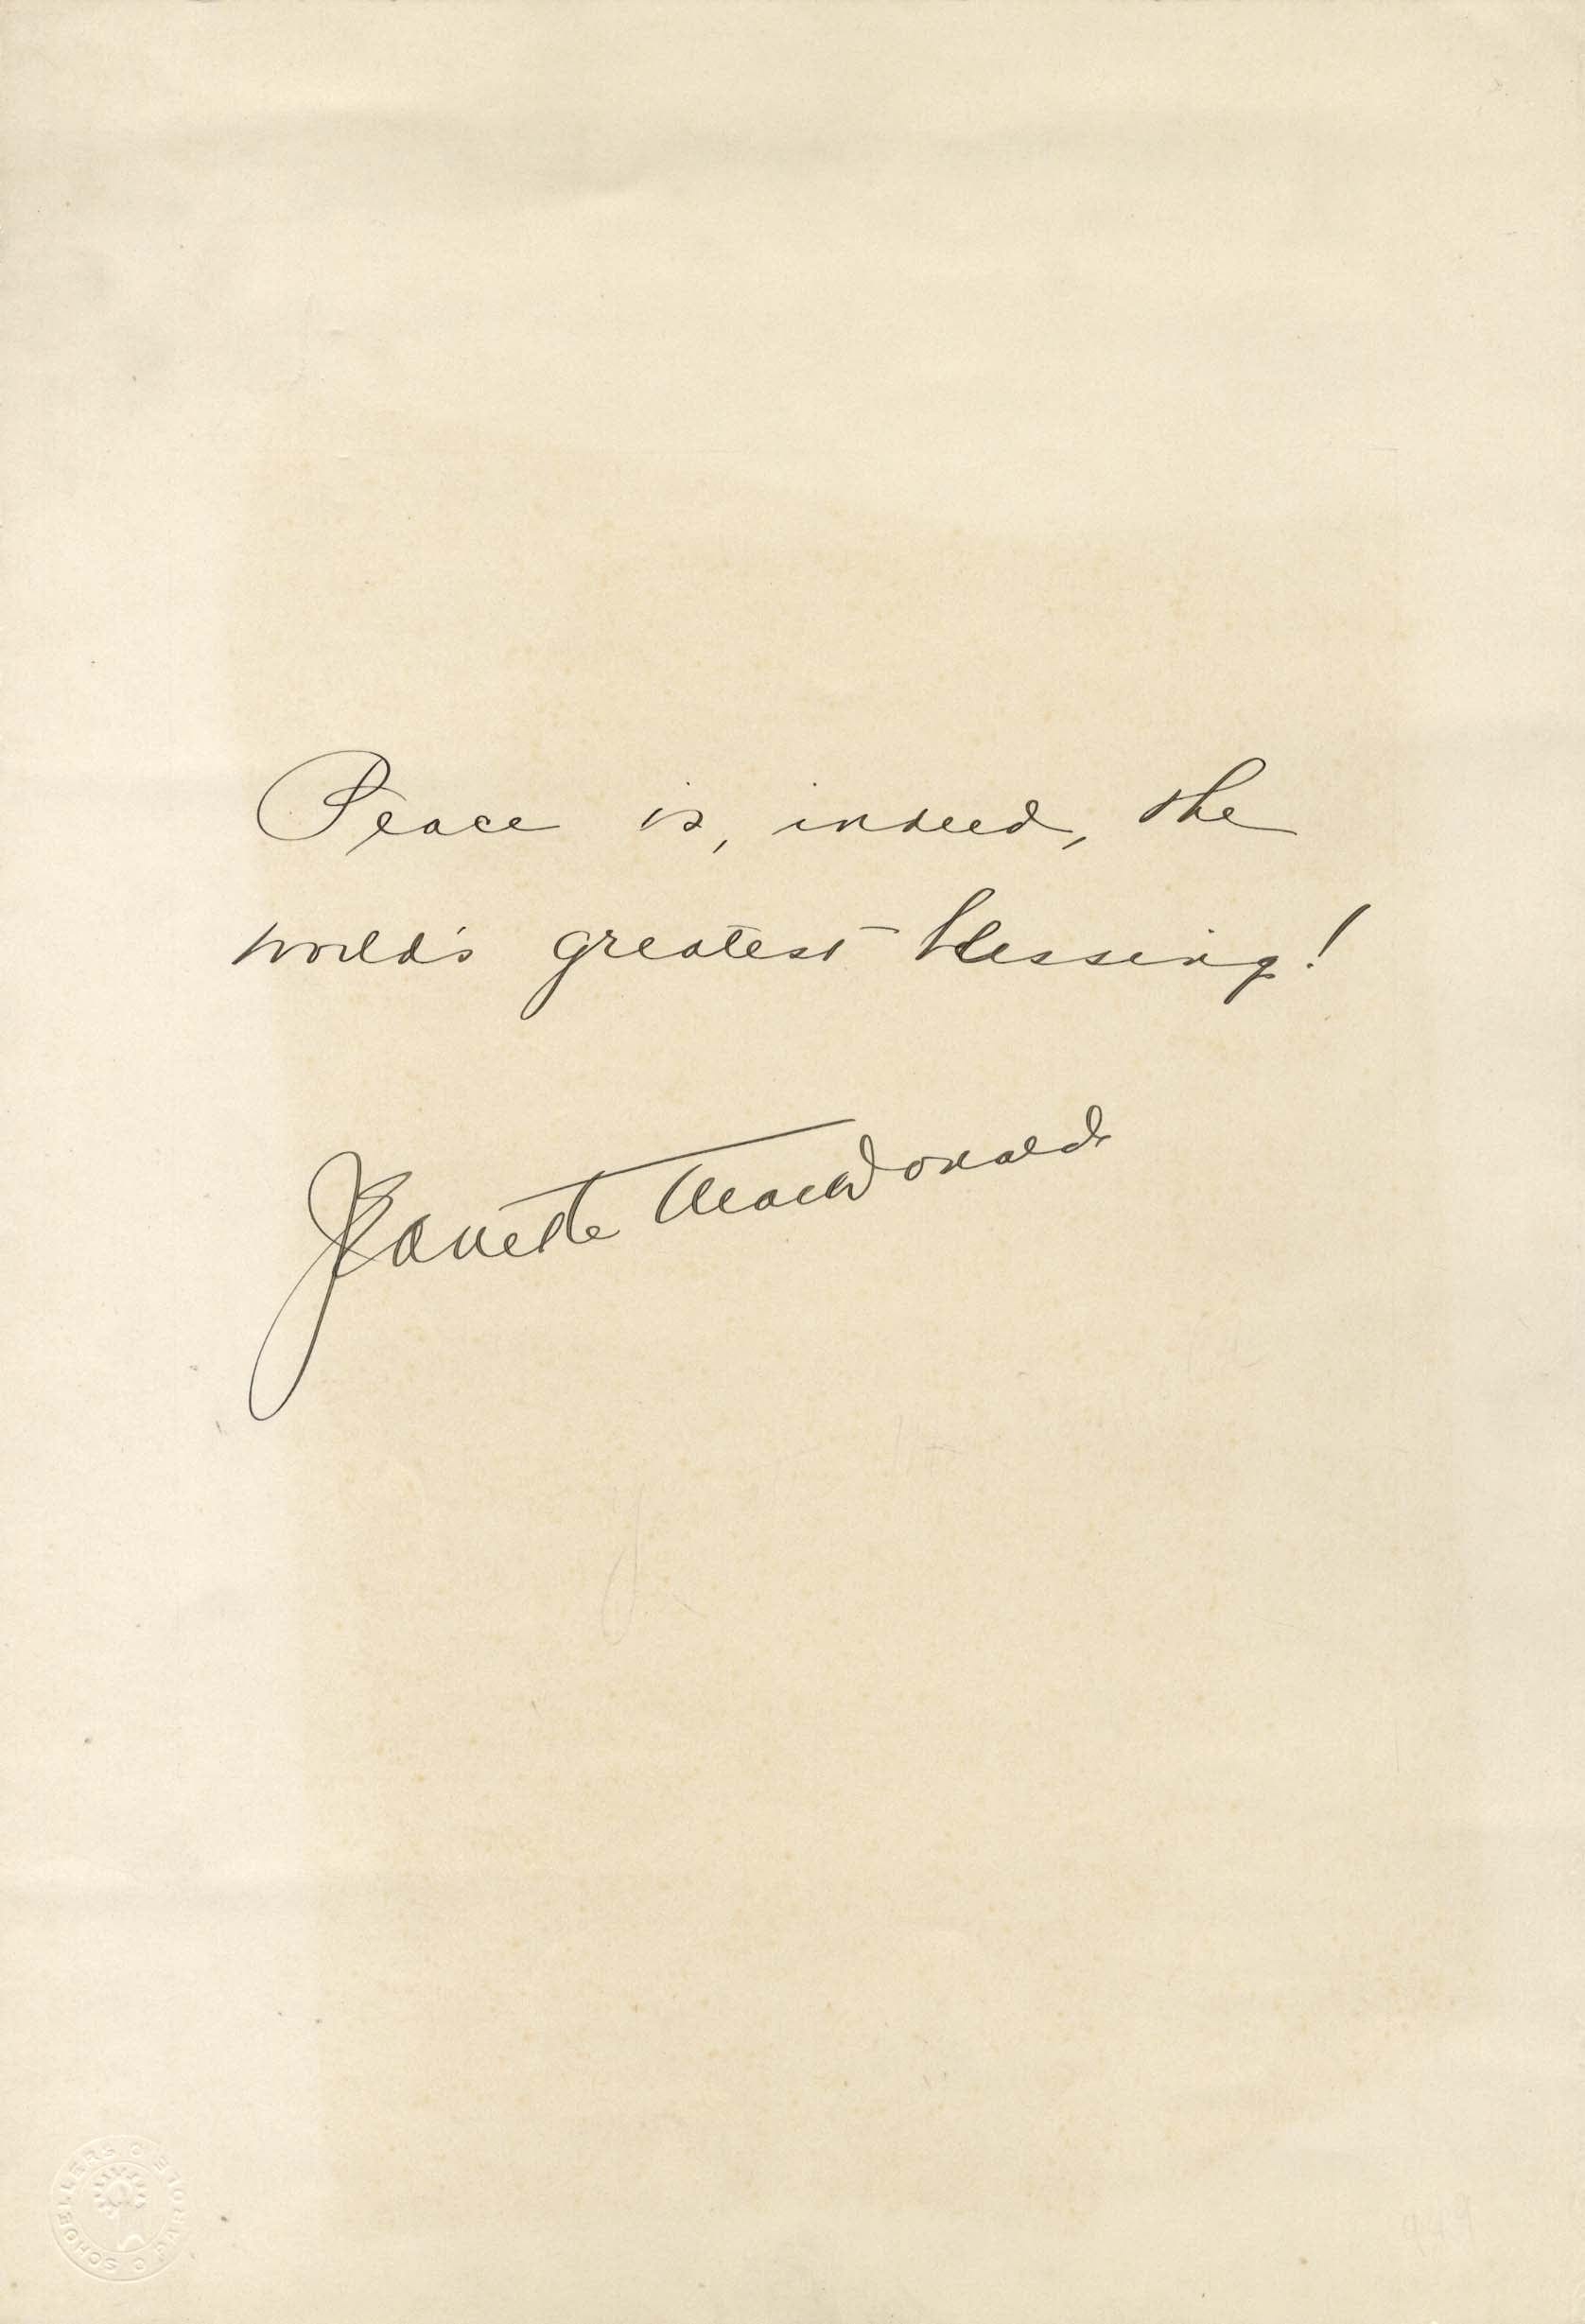 Peace is, indeed, the
world's greatest blessing!
Jeanette MacDonald
SCHOELLERS